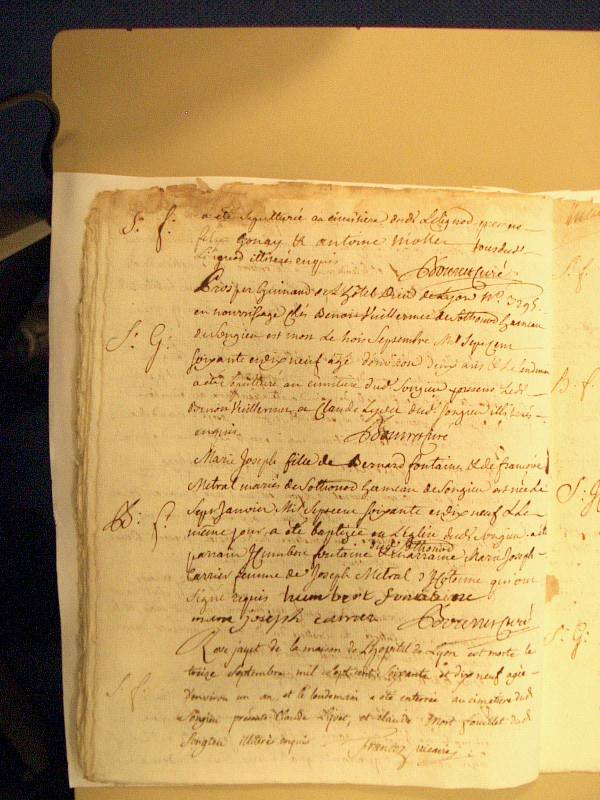 S: f: a été sepulturée au cimitiere dudt Lilignod presens
gonay & antoine Mottet tous dudt
Lilignod illiterés enquis Bouvier curé
Prosper Guinand de l'hôtel Dieu de Lyon No 3295
en nourrissage chés Benoit Vuillermoz de Sothonod hameau
S: G: de Songieu est mort Le trois Septembre Mil Sept cent
soixante et dix neuf agé d'environ deux ans & Le Lendemain
a été sepulturé au cimitiere dudt Songieu presens Ledt
Benoit Vuillermoz & Claude dudt Songieu illiterés
enquis Bouvier curé
Marie Joseph fille de Bernard fontaine & de françoise
Metral mariés de Sothonod hameau de Songieu est née Le
Sept Janvier Mil Sept cent soixante et dix neuf & Le
B: f: meme jour a été baptizée en L'eglise dudt Songieu a été
dudt Sothonod
parrain Humbert fontaine & Marraine Marie Joseph
Carrier femme de Joseph Metral d'hotonne qui ont
signé requis humbert fontaine
marie joseph carrier Bouvier curé
Rose jayet de la maison de l'hopital de Lyon est morte le
treize Septembre mil sept cent soixante et dix neuf agée
S: f: d'environ un an et le lendemain a été enterrée au cimetiere dudt
Songieu presents Claude et claude dudt
Songieu illiterés enquis vicaire
S: f.
B: f.
S: G: